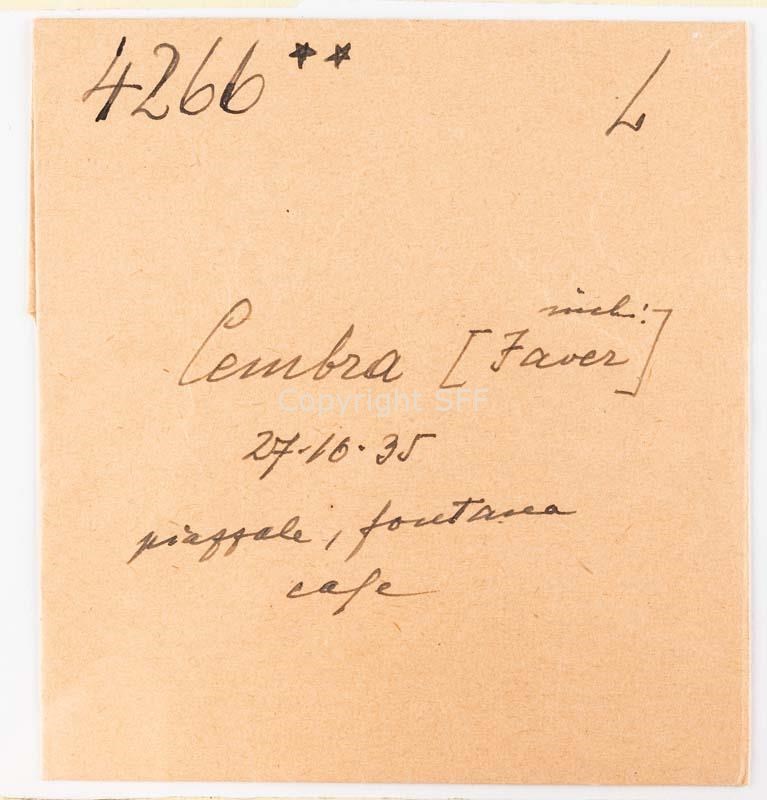 4266 ** L
Cembra [Faver]
Copyright SFF
27-10-35
piazzale, fontana
case